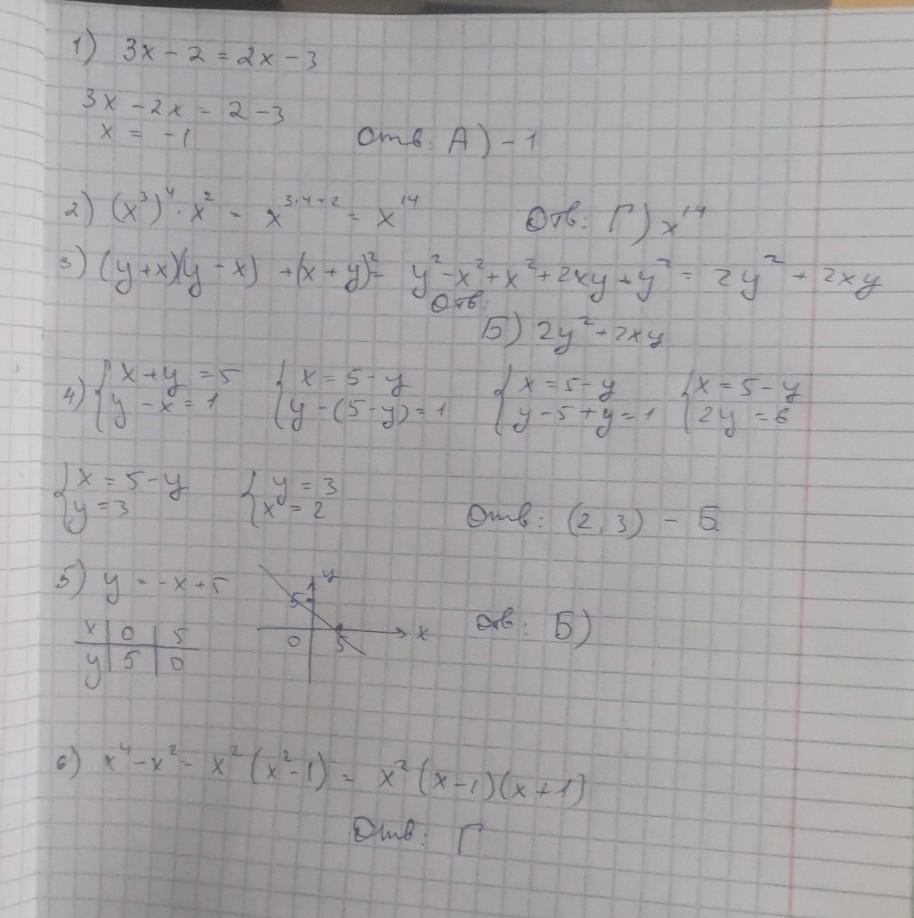 1) 3x - 2 = 2x - 3
3x - 2x = 2 - 3
x = -1 Отв: А) -1
2) (x³)⁴ · x² = x^{3·4+2} = x¹⁴ Отв: Г) x¹⁴
3) (y+x)(y-x) + (x+y)² = y² - x² + x² + 2xy + y² = 2y² + 2xy
Отв:
Б) 2y² + 2xy
4) { x+y = 5 { x = 5-y { x = 5-y { x = 5-y
{ y-x = 1 { y-(5-y) = 1 { y-5+y = 1 { 2y = 6
{ x = 5-y { y = 3
{ y = 3 { x = 2 Отв: (2, 3) - Б
5) y = -x+5 y
5
x 0 5 0 5 x Отв: Б)
y 5 0
6) x⁴ - x² = x² (x²-1) = x² (x-1)(x+1)
Отв: Г